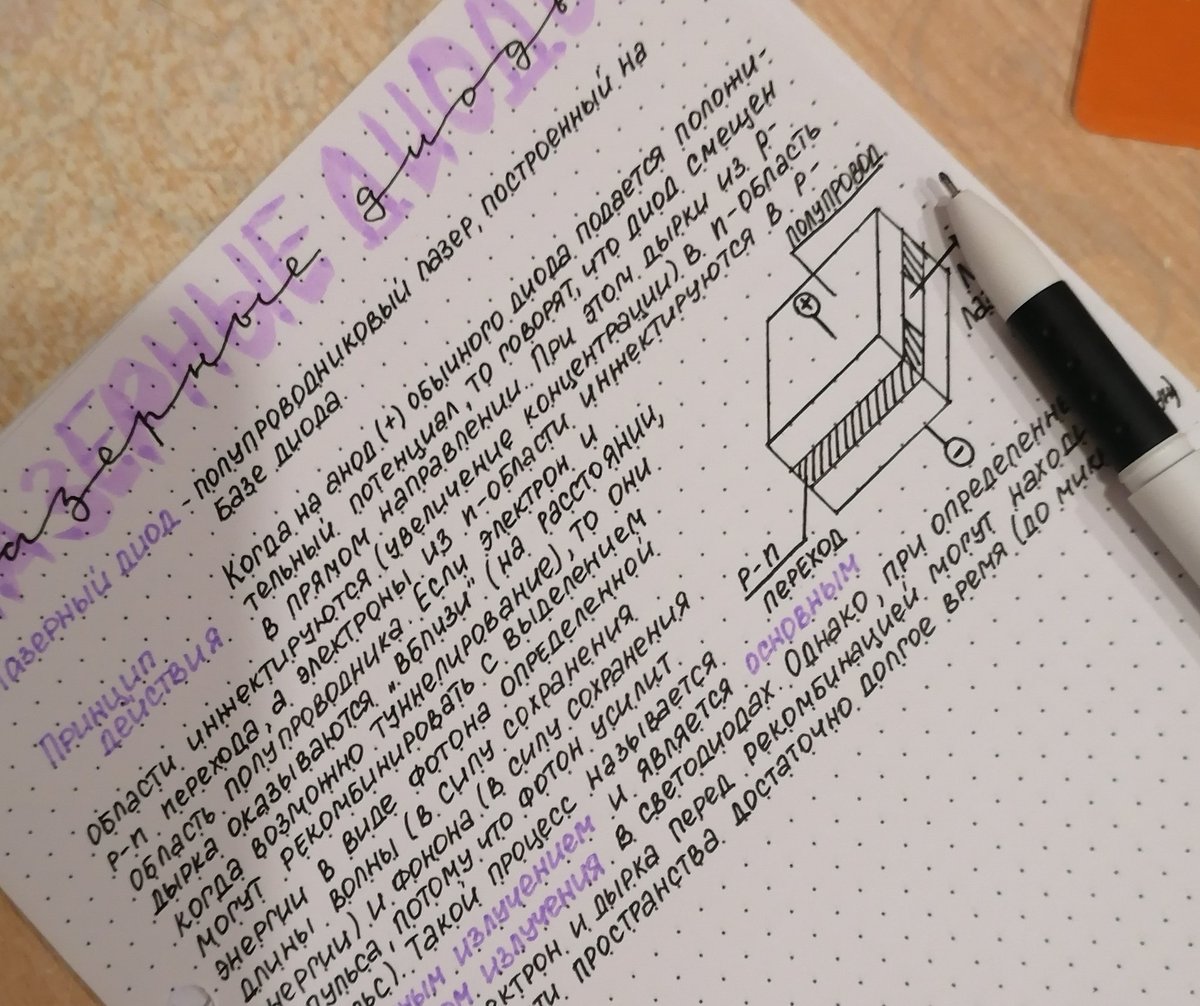 ЛАЗЕРНЫЕ ДИОДЫ
лазерные диоды
Лазерный диод - полупроводниковый лазер, построенный на
базе диода.
Принцип
действия
Когда на анод (+) обычного диода подается положи-
тельный потенциал, то говорят, что диод смещен
в прямом направлении. При этом дырки из p-
области иннектируются (увеличение концентрации) в n-область
p-n перехода, а электроны из n-области иннектируются в p-
область полупроводника. Если электрон и
дырка оказываются "вблизи" (на расстоянии,
когда возможно туннелирование), то они
могут рекомбинировать с выделением
энергии в виде фотона определенной
длины волны (в силу сохранения
энергии) и фонона (в силу сохранения
пульса, потому что фотон усилит
). Такой процесс называется
ным излучением и является основным
излучения в светодиодах. Однако, при определенн
ектрон и дырка перед рекомбинацией могут находи
ти пространства достаточно долгое время (до мик
полупровод.
+
-
p-n
переход